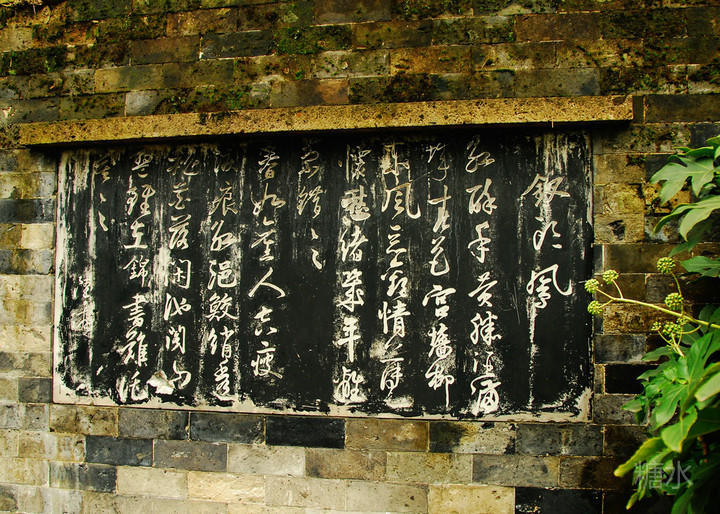 釵頭鳳
紅酥手黄縢酒滿
城春色宫墻柳
東風惡歡情薄一
懷愁緒幾年離
索錯〻〻
春如舊人空瘦
淚痕紅浥鮫綃透
桃花落閑池閣山
盟雖在錦書難託
莫〻〻
糖水